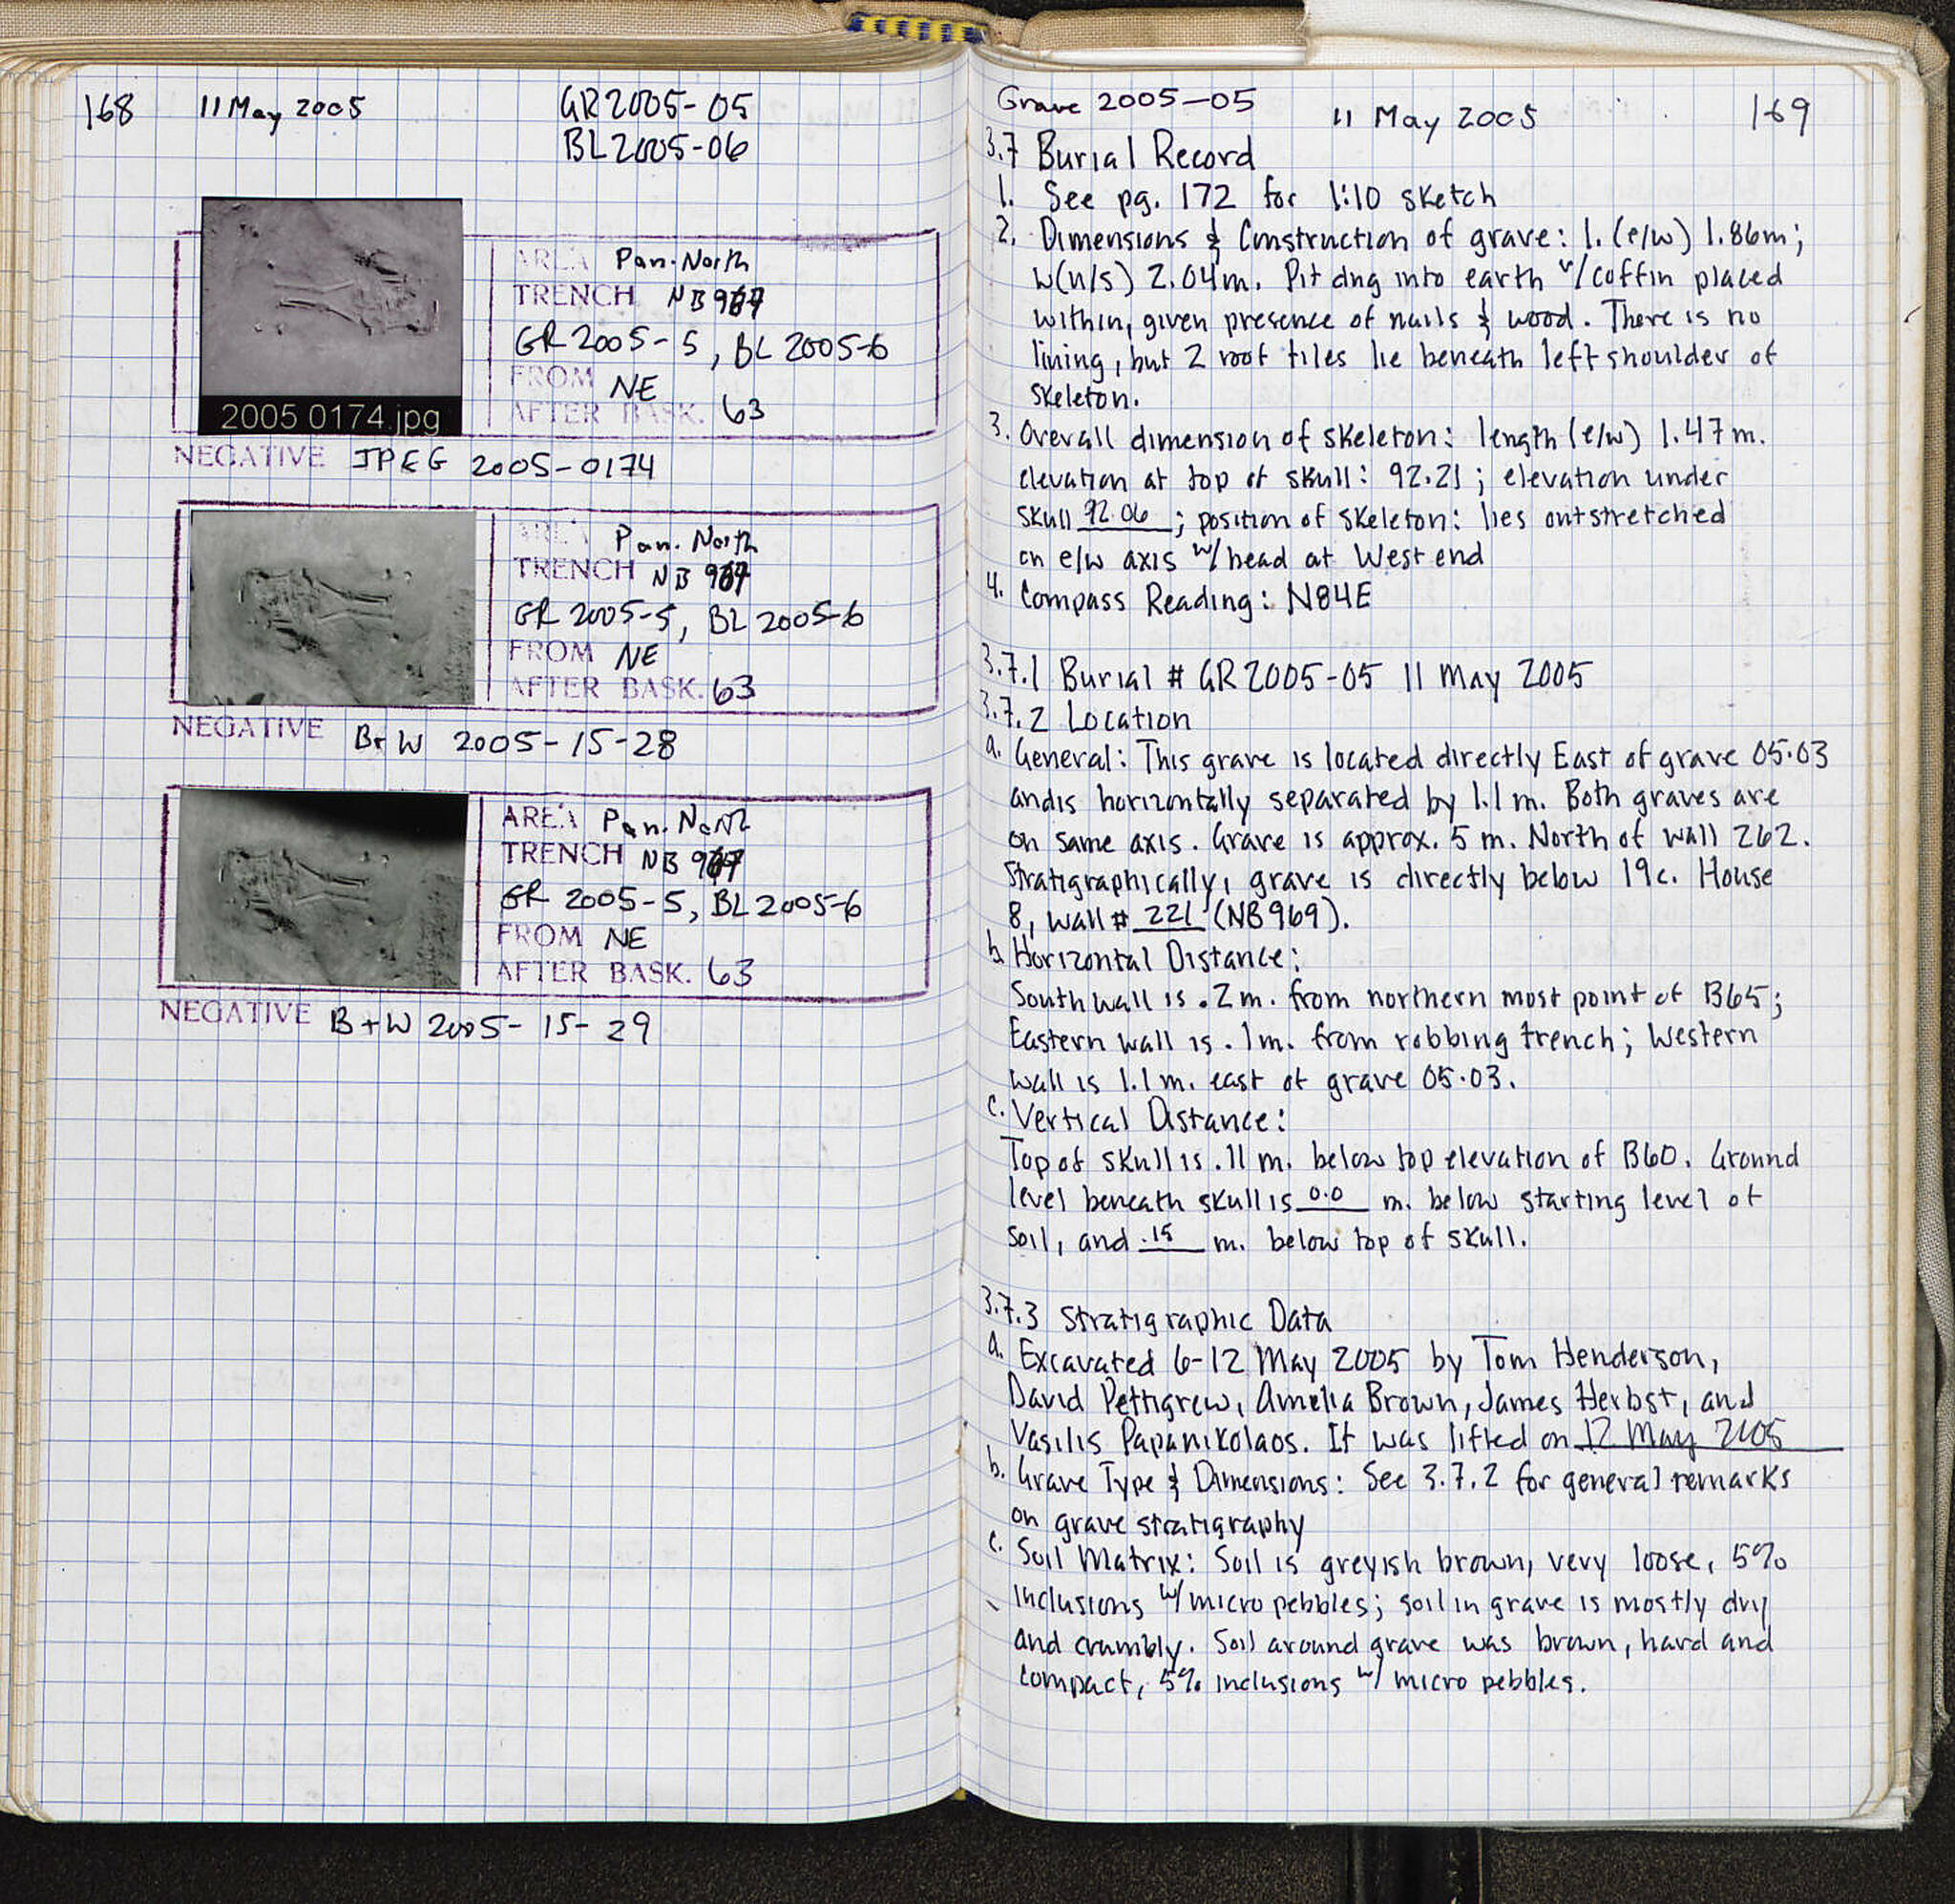 168 11 May 2005 GR2005-05
BL2005-06
2005 0174.jpg
AREA Pan. North
TRENCH NB 967
GR 2005-5, BL 2005-6
FROM NE
AFTER BASK. 63
NEGATIVE JPEG 2005-0174
AREA Pan. North
TRENCH NB 967
GR 2005-5, BL 2005-6
FROM NE
AFTER BASK. 63
NEGATIVE B+W 2005-15-28
AREA Pan. North
TRENCH NB 967
GR 2005-5, BL 2005-6
FROM NE
AFTER BASK. 63
NEGATIVE B+W 2005-15-29
Grave 2005-05 11 May 2005 169
3.7 Burial Record
1. See pg. 172 for 1:10 sketch
2. Dimensions & Construction of grave: l. (e/w) 1.86m;
w(n/s) 2.04m. Pit dug into earth w/ coffin placed
within, given presence of nails & wood. There is no
lining, but 2 roof tiles lie beneath left shoulder of
skeleton.
3. Overall dimension of skeleton: length (e/w) 1.47m.
elevation at top of skull: 92.21; elevation under
skull 92.06; position of skeleton: lies outstretched
on e/w axis w/ head at West end
4. Compass Reading: N84E
3.7.1 Burial # GR2005-05 11 May 2005
3.7.2 Location
a. General: This grave is located directly East of grave 05.03
and is horizontally separated by 1.1 m. Both graves are
on same axis. Grave is approx. 5 m. North of wall 262.
Stratigraphically, grave is directly below 19c. House
8, wall # 221 (NB969).
b. Horizontal Distance:
South wall is .2m. from northern most point of B65;
Eastern wall is .1m. from robbing trench; Western
wall is 1.1m. east of grave 05.03.
c. Vertical Distance:
Top of skull is .11 m. below top elevation of B60. Ground
level beneath skull is 0.0 m. below starting level of
soil, and .15 m. below top of skull.
3.7.3 Stratigraphic Data
a. Excavated 6-12 May 2005 by Tom Henderson,
David Pettigrew, Amelia Brown, James Herbst, and
Vasilis Papanikolaos. It was lifted on 12 May 2005
b. Grave Type & Dimensions: See 3.7.2 for general remarks
on grave stratigraphy
c. Soil Matrix: Soil is greyish brown, very loose, 5%
inclusions w/ micro pebbles; soil in grave is mostly dry
and crumbly. Soil around grave was brown, hard and
compact, 5% inclusions w/ micro pebbles.